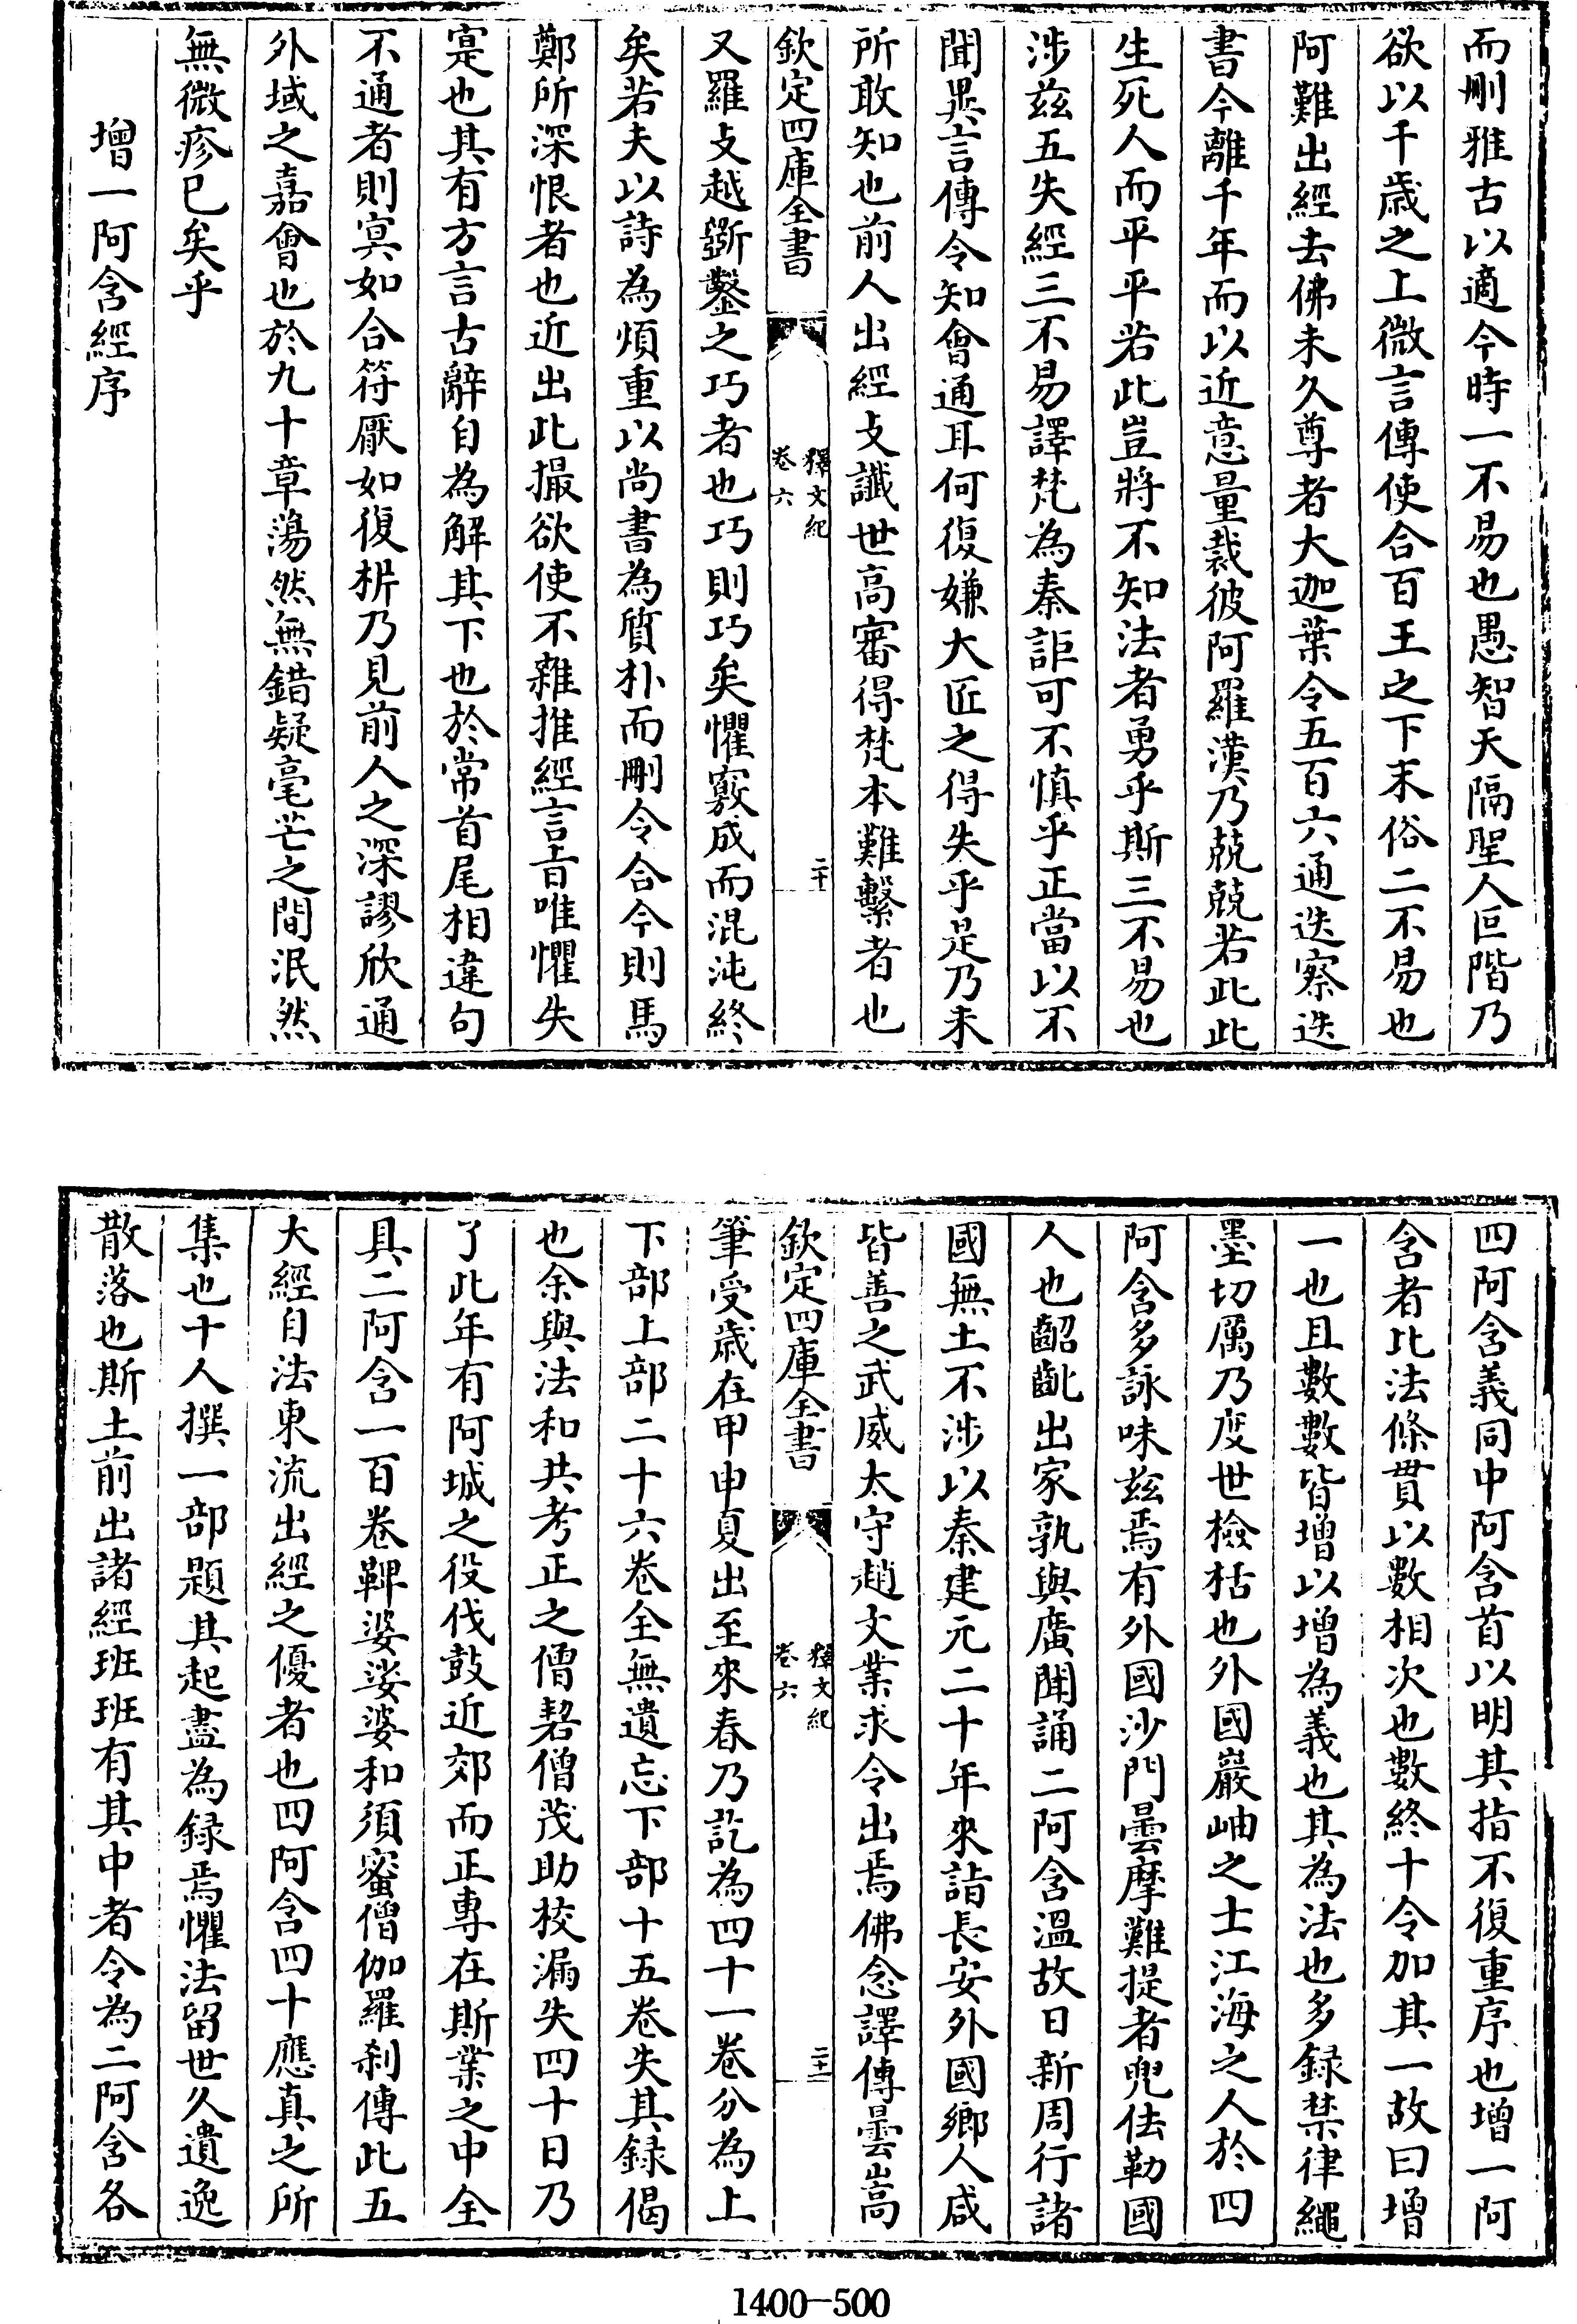 而刪雅古以適今時一不易也愚智天隔聖人叵階乃
欲以千歳之上微言傳使合百王之下末俗二不易也
阿難出經去佛未久尊者大迦葉令五百六通迭察迭
書今離千年而以近意量裁彼阿羅漢乃兢兢若此此
生死人而平平若此豈將不知法者勇乎斯三不易也
涉茲五失經三不易譯梵為秦詎可不慎乎正當以不
聞異言傳令知會通耳何復嫌大匠之得失乎是乃未
所敢知也前人出經攴讖世高審得梵本難繫者也
欽定四庫全書
釋文紀
卷六
二十
又羅攴越斵鑿之巧者也巧則巧矣懼竅成而混沌終
矣若夫以詩為煩重以尚書為質朴而刪令合今則馬
鄭所深恨者也近出此撮欲使不雜推經言旨唯懼失
寔也其有方言古辭自為解其下也於常首尾相違句
不通者則㝠如合符厭如復析乃見前人之深謬欣通
外域之嘉會也於九十章蕩然無錯疑毫芒之間泯然
無微疹已矣乎
增一阿含經序
四阿含義同中阿含首以明其指不復重序也增一阿
含者比法條貫以數相次也數終十令加其一故曰增
一也且數數皆增以增為義也其為法也多録禁律繩
墨切厲乃度世檢括也外國巖岫之士江海之人於四
阿含多詠味茲焉有外國沙門曇摩難提者兜佉勒國
人也齠齔出家孰與廣聞誦二阿含溫故日新周行諸
國無土不涉以秦建元二十年來詣長安外國鄉人咸
皆善之武威太守趙文業求令出焉佛念譯傳曇嵩
欽定四庫全書
釋文紀
卷六
二十一
筆受歳在甲申夏出至來春乃訖為四十一卷分為上
下部上部二十六卷全無遺忘下部十五卷失其録偈
也余與法和共考正之僧䂮僧茂助挍漏失四十日乃
了此年有阿城之役伐鼓近郊而正專在斯業之中全
具二阿含一百卷鞞婆婆和須蜜僧伽羅刹傳此五
大經自法東流出經之優者也四阿含四十應真之所
集也十人撰一部題其起盡為録焉懼法留世久遺逸
散落也斯土前出諸經班班有其中者令為二阿含各
1400-500